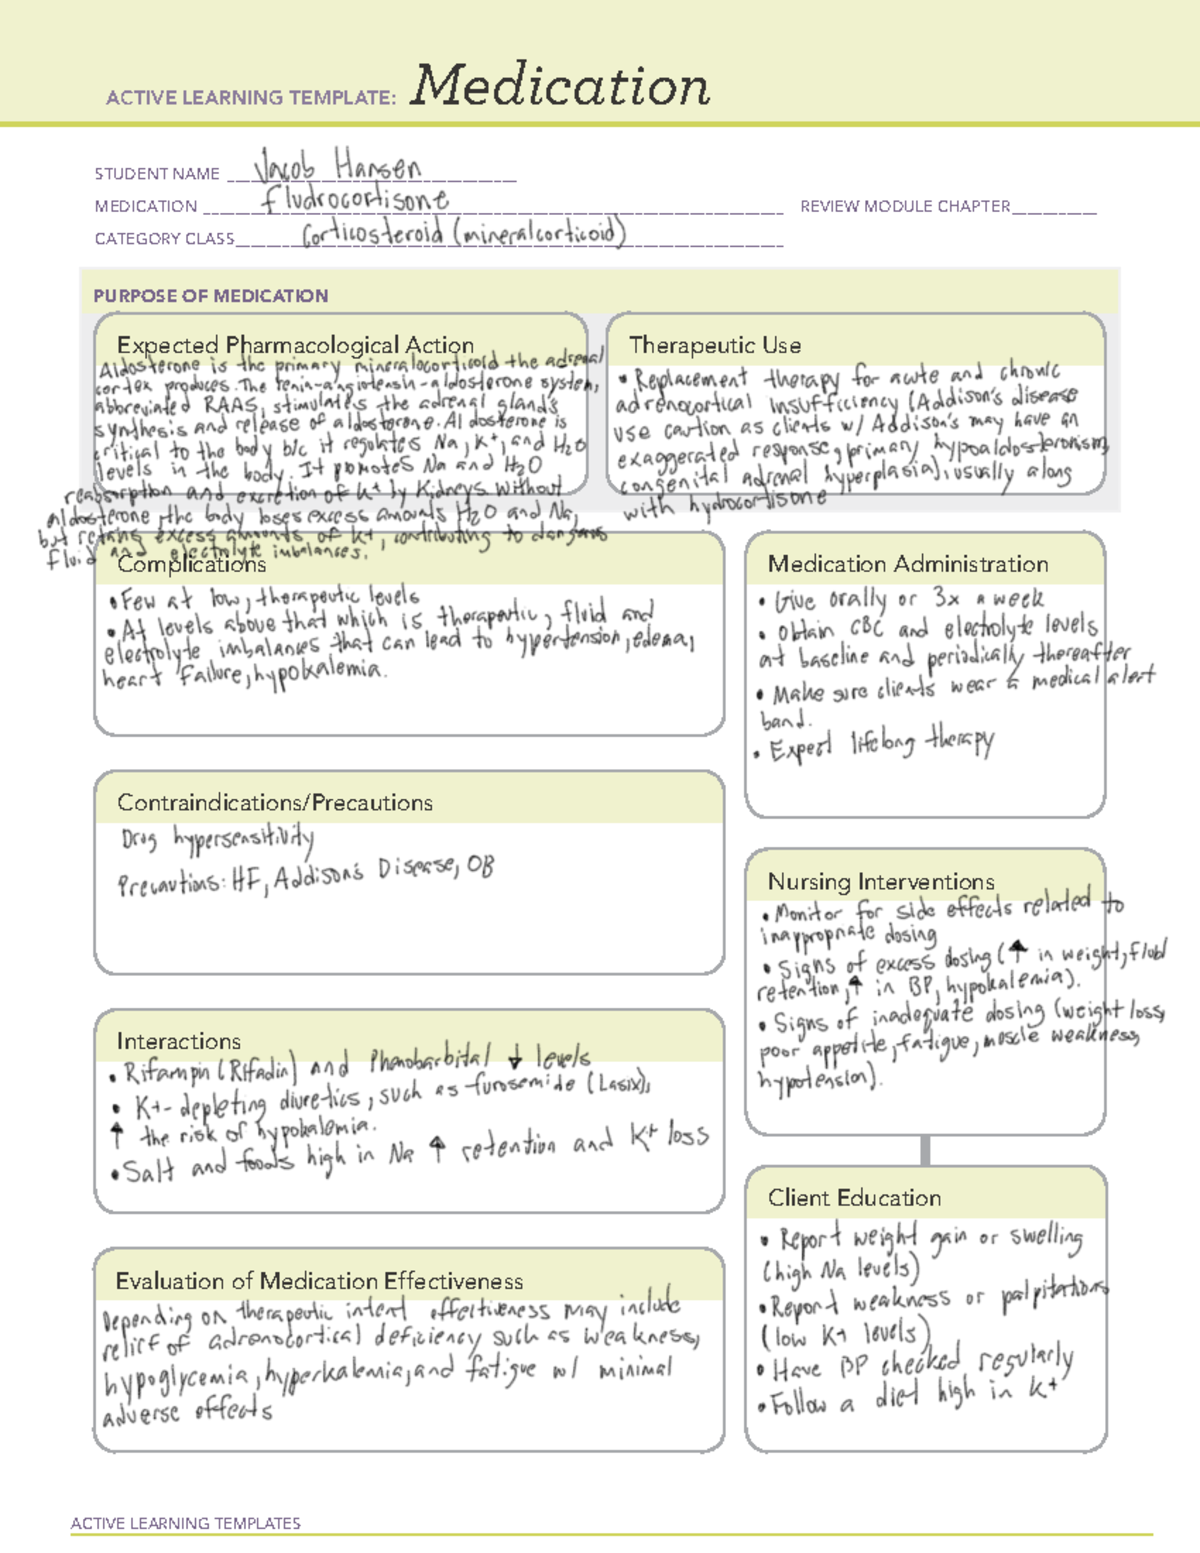 ACTIVE LEARNING TEMPLATE: Medication
STUDENT NAME Jacob Hansen
MEDICATION fludrocortisone REVIEW MODULE CHAPTER
CATEGORY CLASS Corticosteroid (mineralcorticoid)
PURPOSE OF MEDICATION
Expected Pharmacological Action
Aldosterone is the primary mineralocorticoid the adrenal
cortex produces. The renin-angiotensin-aldosterone system,
abbreviated RAAS, stimulates the adrenal glands
synthesis and release of aldosterone. Aldosterone is
critical to the body b/c it regulates Na, K+, and H2O
levels in the body. It promotes Na and H2O
reabsorption and excretion of K+ by kidneys. Without
aldosterone, the body loses excess amounts H2O and Na,
but retains excess amounts of K+, contributing to dangerous
fluid and electrolyte imbalances.
Therapeutic Use
• Replacement therapy for acute and chronic
adrenocortical insufficiency (Addison's disease
use caution as clients w/ Addison's may have an
exaggerated response, primary hypoaldosteronism,
congenital adrenal hyperplasia), usually along
with hydrocortisone
Complications
• Few at low, therapeutic levels
• At levels above that which is therapeutic, fluid and
electrolyte imbalances that can lead to hypertension, edema,
heart failure, hypokalemia.
Contraindications/Precautions
Drug hypersensitivity
Precautions: HF, Addison's Disease, OB
Interactions
• Rifampin (Rifadin) and Phenobarbital ↓ levels
• K+- depleting diuretics, such as furosemide (Lasix),
↑ the risk of hypokalemia.
• Salt and foods high in Na ↑ retention and K+ loss
Evaluation of Medication Effectiveness
Depending on therapeutic intent effectiveness may include
relief of adrenocortical deficiency such as weakness,
hypoglycemia, hyperkalemia, and fatigue w/ minimal
adverse effects
Medication Administration
• Give orally or 3x a week
• Obtain CBC and electrolyte levels
at baseline and periodically thereafter
• Make sure clients wear a medical alert
band.
• Expect lifelong therapy
Nursing Interventions
• Monitor for side effects related to
inappropriate dosing
• Signs of excess dosing (↑ in weight, fluid
retention, ↑ in BP, hypokalemia).
• Signs of inadequate dosing (weight loss,
poor appetite, fatigue, muscle weakness,
hypotension).
Client Education
• Report weight gain or swelling
(high Na levels)
• Report weakness or palpitations
(low K+ levels)
• Have BP checked regularly
• Follow a diet high in K+
ACTIVE LEARNING TEMPLATES